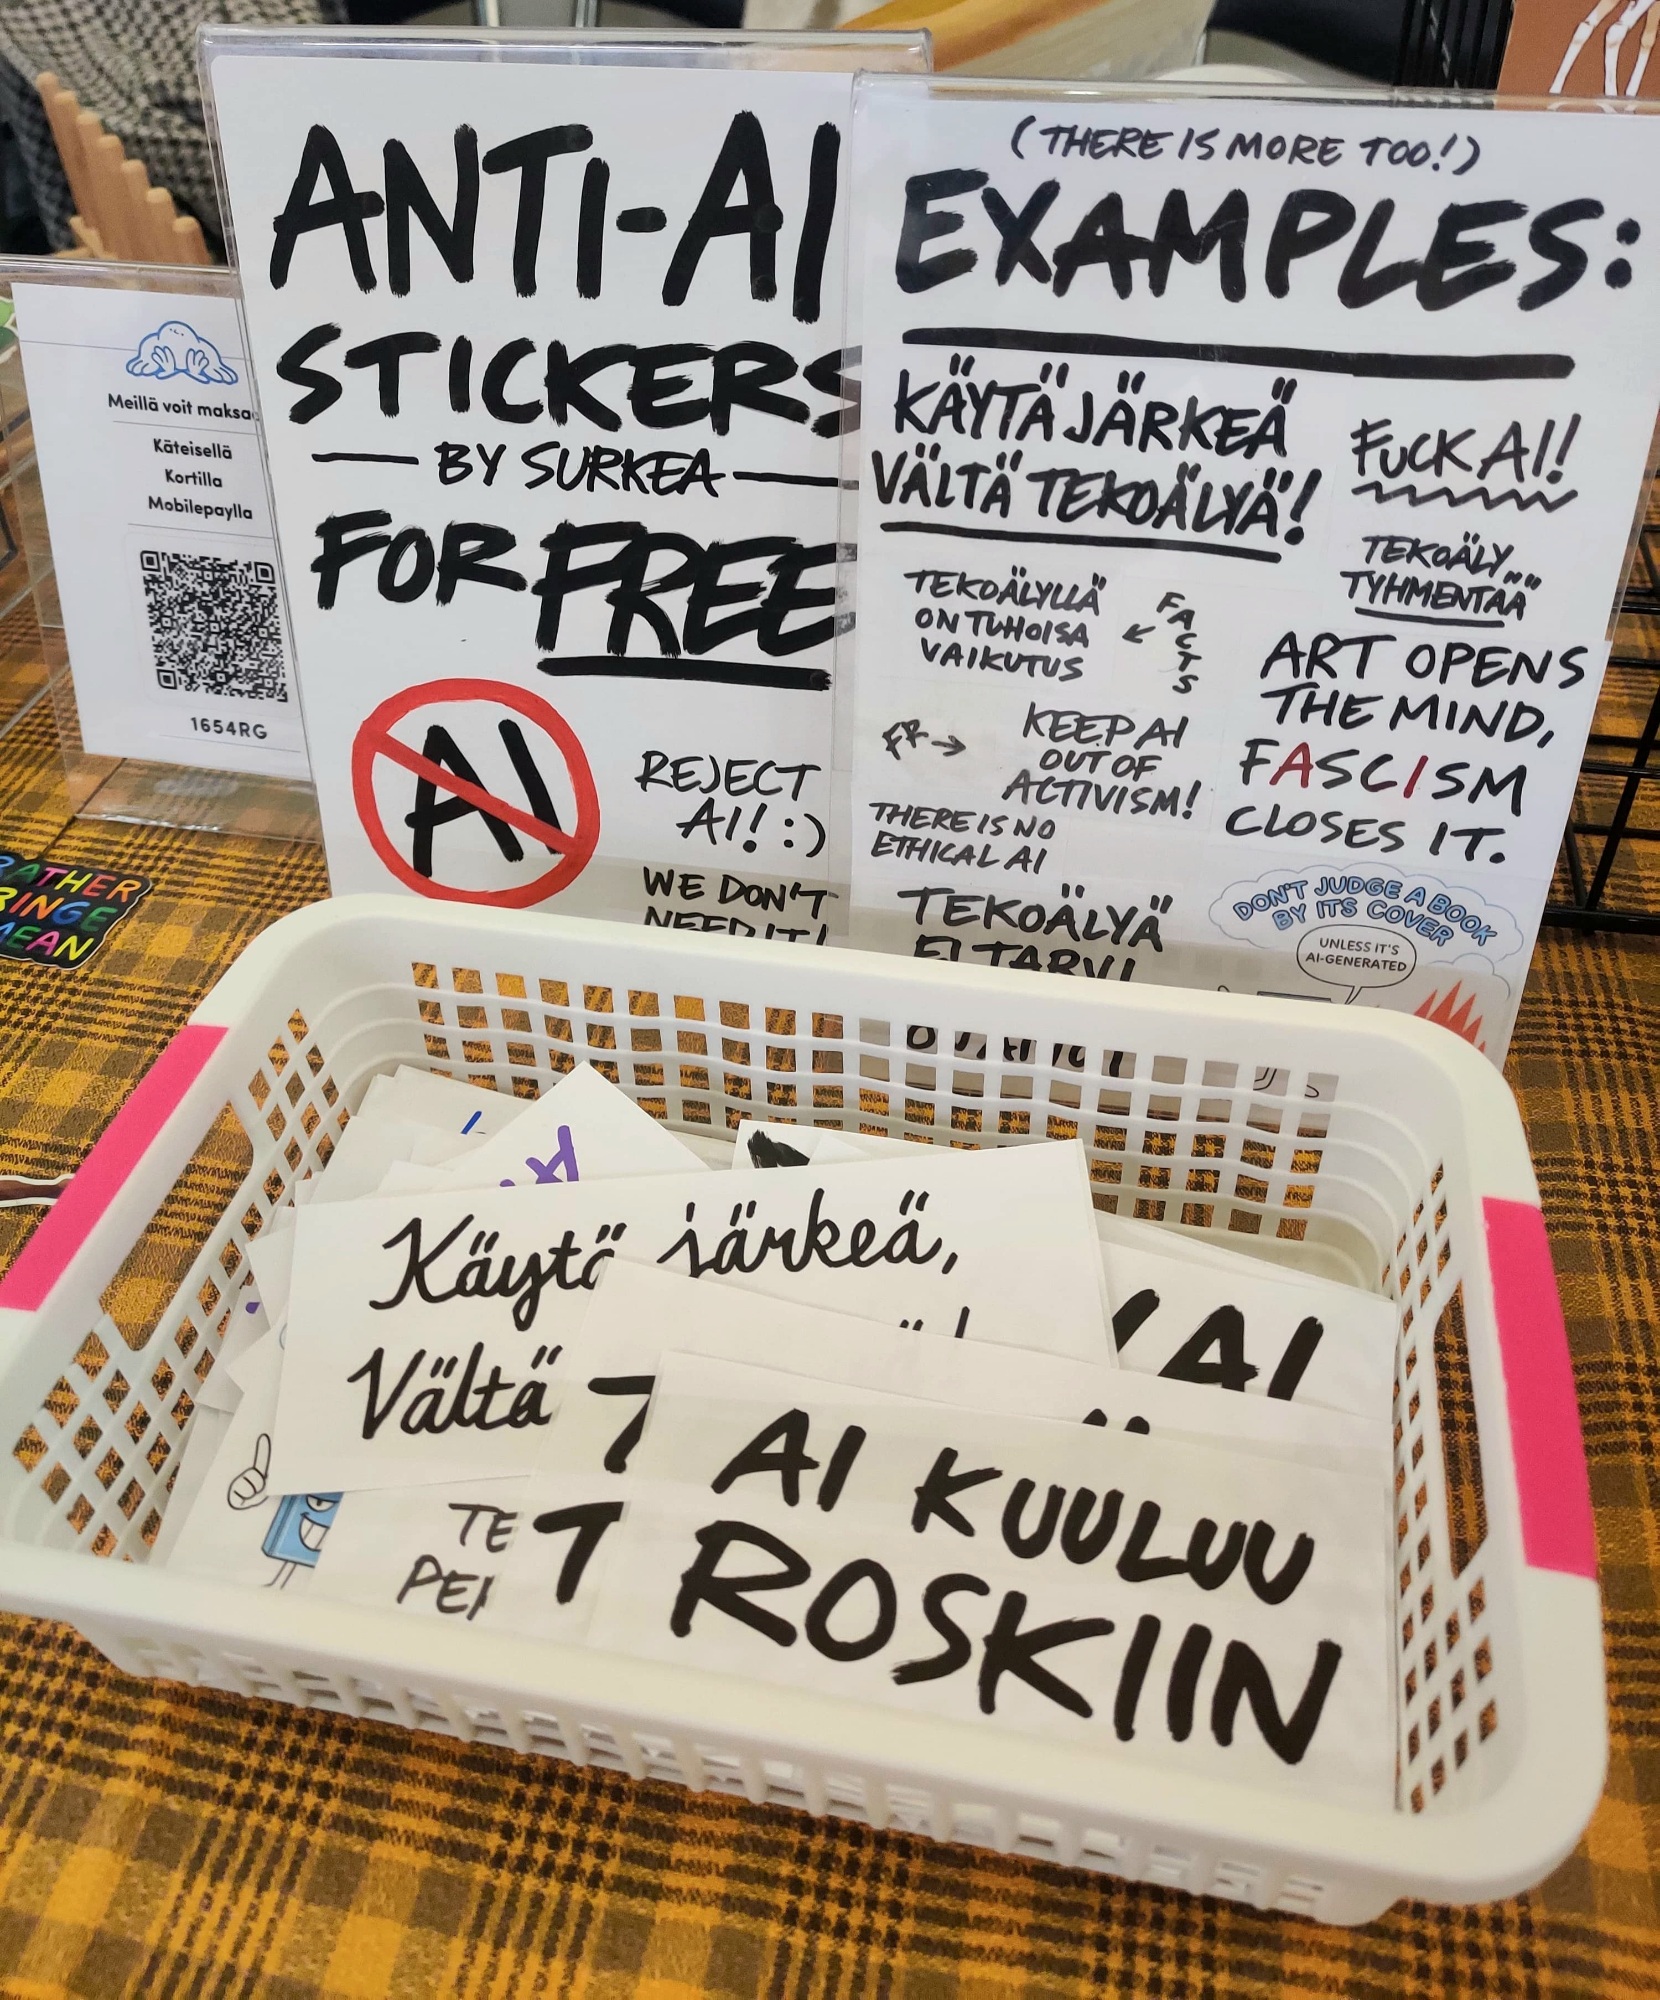 ANTI-AI
STICKERS
BY SURKEA
FOR FREE
AI
REJECT
AI! :)
WE DON'T
NEED IT!
(THERE IS MORE TOO!)
EXAMPLES:
KÄYTÄ JÄRKEÄ
VÄLTÄ TEKOÄLYÄ!
FUCK AI!
TEKOÄLY
TYHMENTÄÄ
TEKOÄLYLLÄ
ON TUHOISA
VAIKUTUS
FACTS
ART OPENS
THE MIND,
FASCISM
CLOSES IT.
FR →
KEEP AI
OUT OF
ACTIVISM!
THERE IS NO
ETHICAL AI
TEKOÄLYÄ
EI TARVI
DON'T JUDGE A BOOK
BY ITS COVER
UNLESS IT'S
AI-GENERATED
Meillä voit
Käteisellä
Kortilla
Mobilepaylla
1654RG
Käytä järkeä,
Vältä
AI
AI KUULUU
ROSKIIN